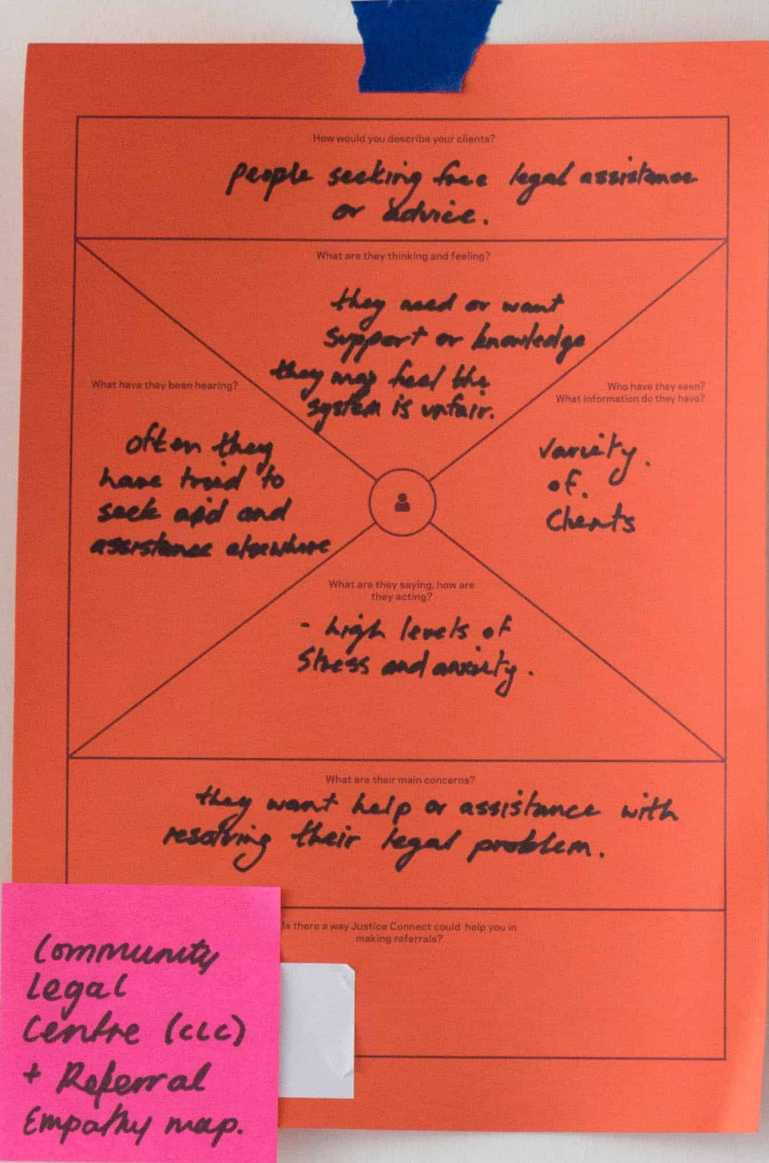 How would you describe your clients?
people seeking free legal assistance
or advice.
What are they thinking and feeling?
they need or want
support or knowledge
they may feel the
system is unfair.
What have they been hearing?
often they
have tried to
seek aid and
assistance elsewhere
Who have they seen?
What information do they have?
variety.
of.
clients
What are they saying, how are
they acting?
- high levels of
stress and anxiety.
What are their main concerns?
they want help or assistance with
resolving their legal problem.
Is there a way Justice Connect could help you in
making referrals?
Community
Legal
Centre (CLC)
+ Referral
Empathy map.